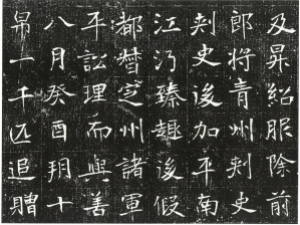 及昇紹服除前
郎将青州刾史
刾史後加平南
江乃臻趣後假
都督定州諸軍
平訟理而與善
八月癸酉朔十
帛一千匹追贈